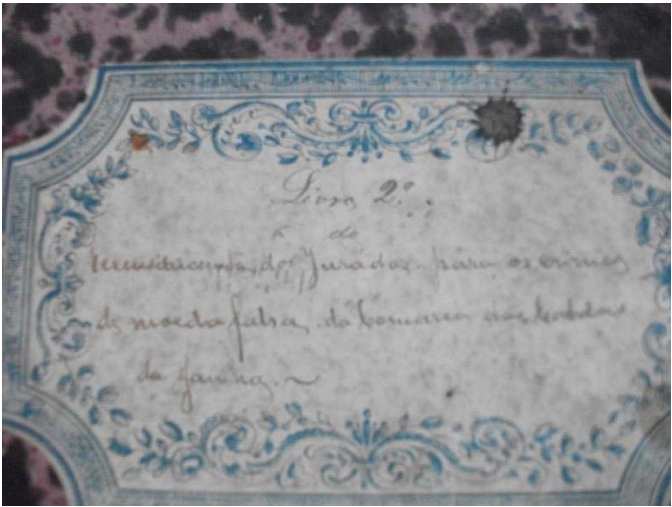 Livro 2º
de
dos Jurados para os crimes
de moeda falsa, da Comarca das Caldas
da Rainha